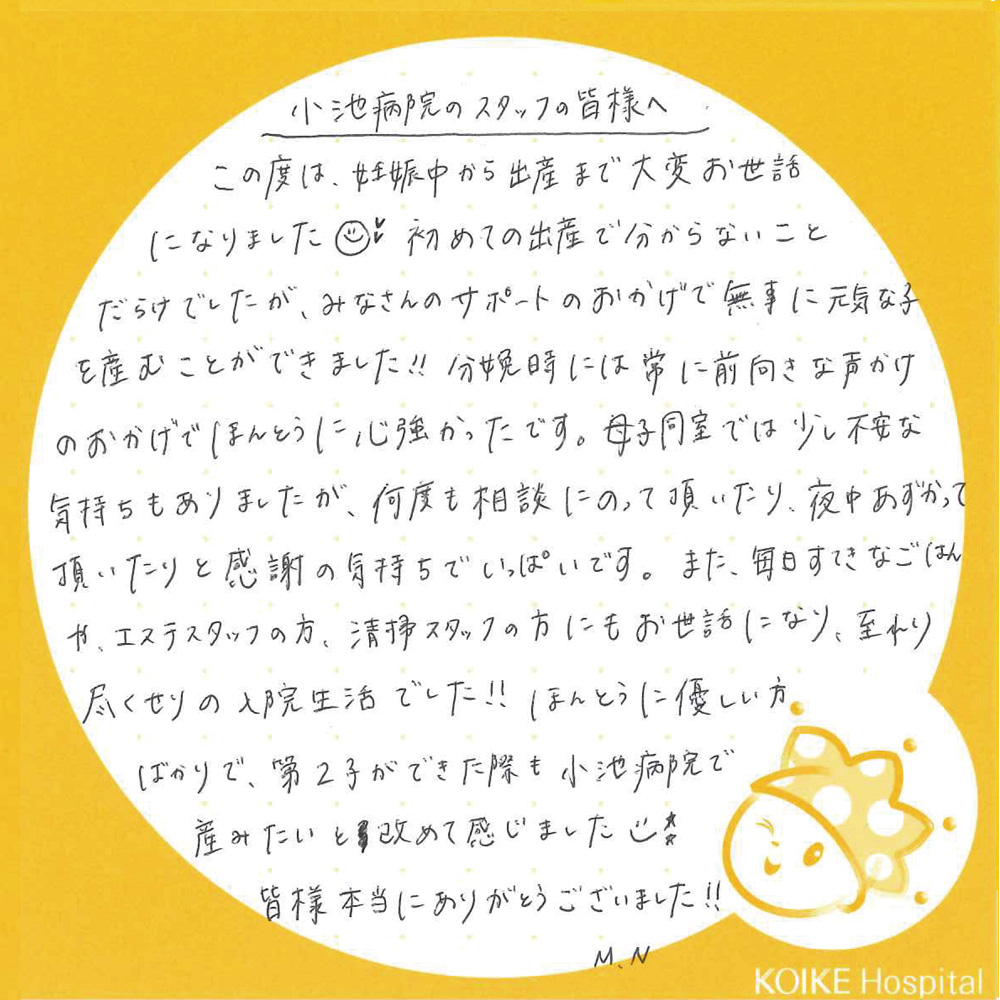 小池病院のスタッフの皆様へ
この度は、妊娠中から出産まで大変お世話
になりました 初めての出産で分からないこと
だらけでしたが、みなさんのサポートのおかげで無事に元気な子
を産むことができました!! 分娩時には常に前向きな声かけ
のおかげでほんとうに心強かったです。母子同室では少し不安な
気持ちもありましたが、何度も相談にのって頂いたり、夜中あずかって
頂いたりと感謝の気持ちでいっぱいです。また、毎日すてきなごはん
や、エステスタッフの方、清掃スタッフの方にもお世話になり、至れり
尽くせりの入院生活でした!! ほんとうに優しい方
ばかりで、第2子ができた際も小池病院で
産みたいと改めて感じました
皆様本当にありがとうございました!!
M.N
KOIKE Hospital